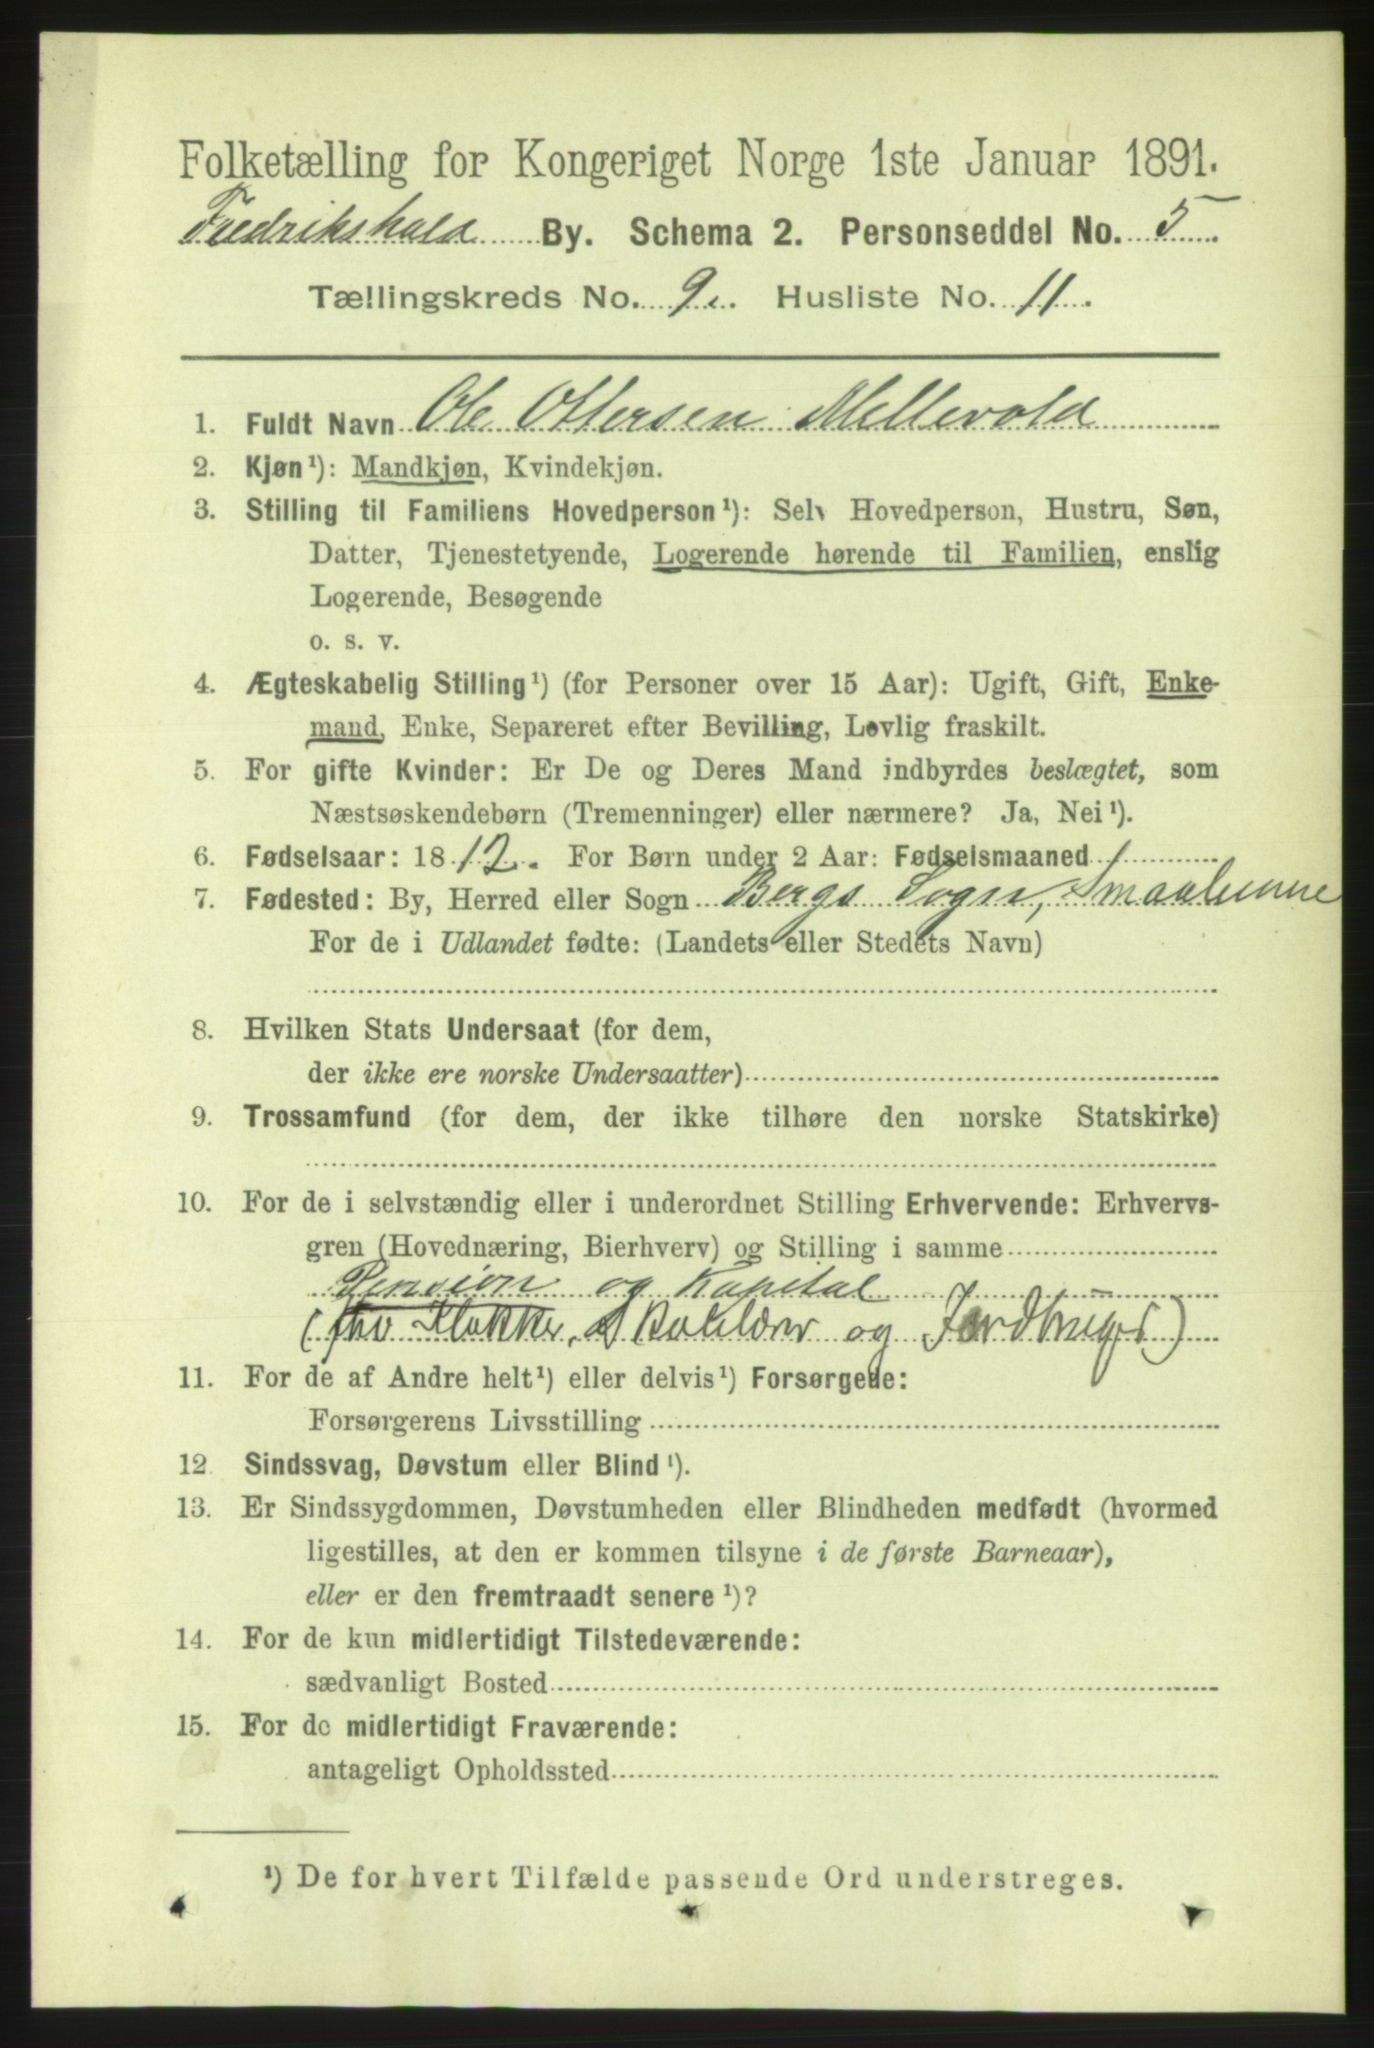 Folketælling for Kongeriget Norge 1ste Januar 1891.
Fredrikshald By. Schema 2. Personseddel No. 5
Tællingskreds No. 9. Husliste No. 11.
1. Fuldt Navn Ole Ottersen Mellevold
2. Kjøn¹): Mandkjøn, Kvindekjøn.
3. Stilling til Familiens Hovedperson¹): Selv Hovedperson, Hustru, Søn,
Datter, Tjenestetyende, Logerende hørende til Familien, enslig
Logerende, Besøgende
o. s. v.
4. Ægteskabelig Stilling¹) (for Personer over 15 Aar): Ugift, Gift, Enke-
mand, Enke, Separeret efter Bevilling, Lovlig fraskilt.
5. For gifte Kvinder: Er De og Deres Mand indbyrdes beslægtet, som
Næstsøskendebørn (Tremenninger) eller nærmere? Ja, Nei¹).
6. Fødselsaar: 1812. For Børn under 2 Aar: Fødselsmaaned
7. Fødested: By, Herred eller Sogn Bergs Sogn, Smaalenene
For de i Udlandet fødte: (Landets eller Stedets Navn)
8. Hvilken Stats Undersaat (for dem,
der ikke ere norske Undersaatter)
9. Trossamfund (for dem, der ikke tilhøre den norske Statskirke)
10. For de i selvstændig eller i underordnet Stilling Erhvervende: Erhvervs-
gren (Hovednæring, Bierhverv) og Stilling i samme
Pension og Kapital
Klokker, Skolelærer og Jordbruger)
11. For de af Andre helt¹) eller delvis¹) Forsørgede:
Forsørgerens Livsstilling
12. Sindssvag, Døvstum eller Blind¹).
13. Er Sindssygdommen, Døvstumheden eller Blindheden medfødt (hvormed
ligestilles, at den er kommen tilsyne i de første Barneaar),
eller er den fremtraadt senere¹)?
14. For de kun midlertidigt Tilstedeværende:
sædvanligt Bosted
15. For de midlertidigt Fraværende:
antageligt Opholdssted
¹) De for hvert Tilfælde passende Ord understreges.